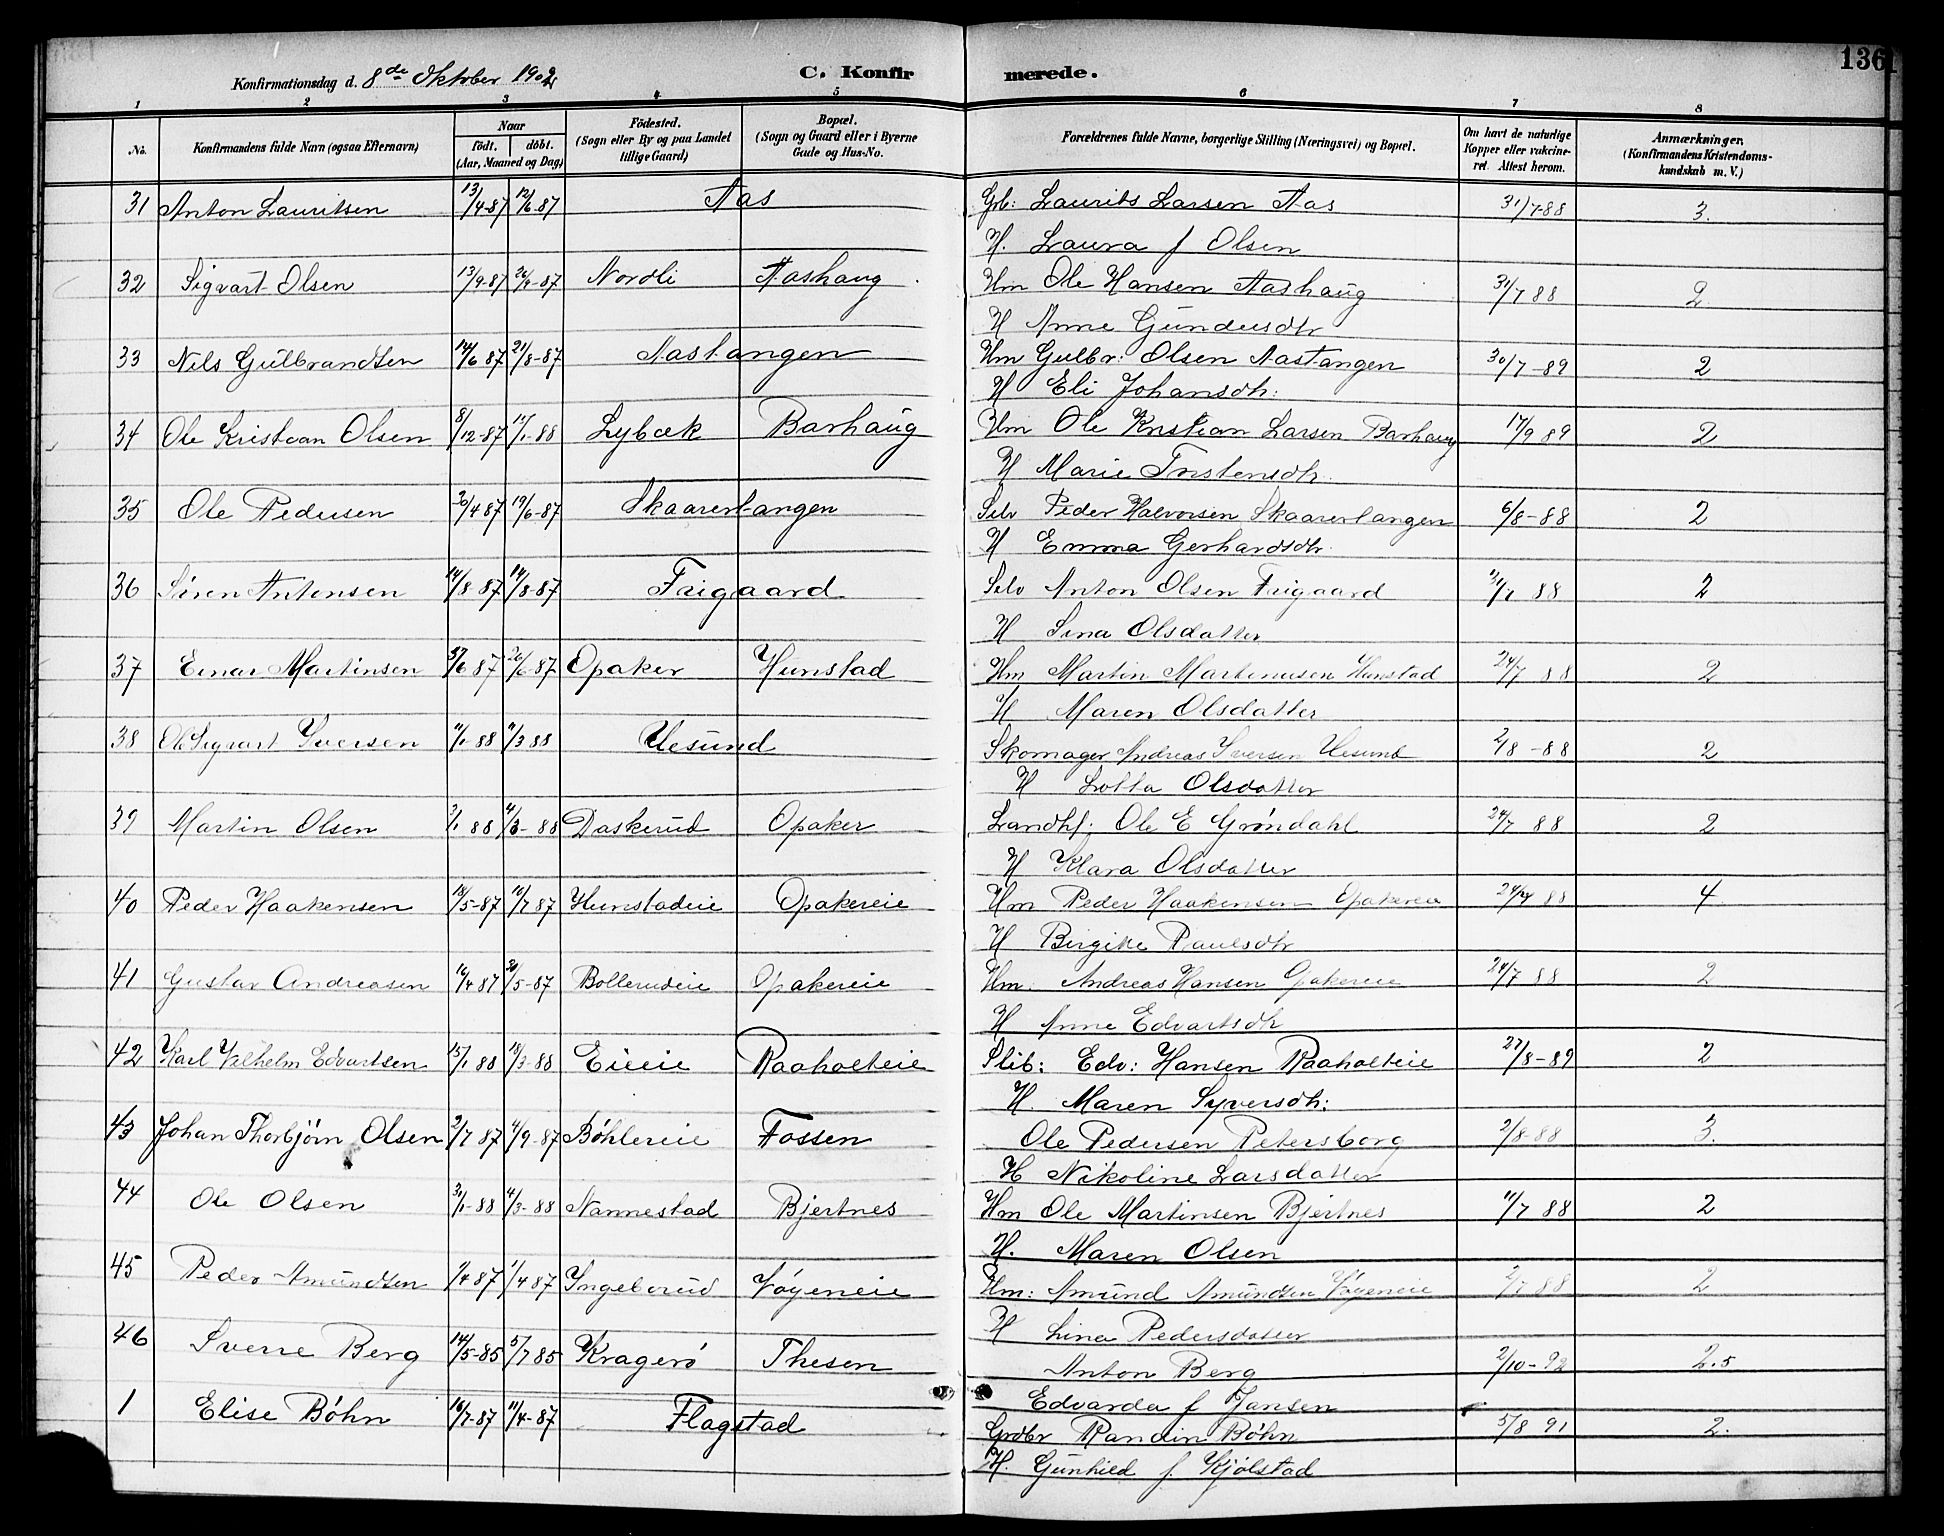 Konfirmationsdag d. 8de Oktober 1902
C. Konfirmerede.
136
1 2 3 4 5 6 7 8
No.
Konfirmandens fulde Navn (ogsaa Efternavn)
Naar
födt. döbt.
(Aar, Maaned og Dag)
Födested.
(Sogn eller By og paa Landet
tillige Gaard)
Bopæl.
(Sogn og Gaard eller i Byerne
Gade og Hus-No.
Forældrenes fulde Navne, borgerlige Stilling (Næringsvei) og Bopæl.
Om havt de naturlige
Kopper eller vakcine-
ret. Attest herom.
Anmærkninger.
(Konfirmandens Kristendoms-
kundskab m. V.)
31 Anton Lauritsen 13/4-87 12/6-87 Aas Grb: Laurits Larsen Aas 31/7-88 3.
H. Laura f Olsen
32 Sigvart Olsen 13/9-87 26/9-87 Nordli Aashaug Hm Ole Hansen Aashaug 31/7 88 2
H Anne Gundersdtr
33 Nils Gulbrandsen 14/6 87 21/8-87 Aastangen Hm Gulbr: Olsen Aastangen 30/7-89 2
H Eli Johansdtr:
34 Ole Kristian Olsen 8/12-87 11/1-88 Lybæk Barhaug Hm Ole Kristian Larsen Barhaug 17/9 89 2
H Marie Tostensdtr.
35 Ole Pedersen 30/4 87 19/6-87 Skaarertangen Selv Peder Halvorsen Skaarertangen 6/8-88 2
H Emma Gerhardsdtr.
36 Sören Antonsen 14/8-87 Frigaard Selv Anton Olsen Frigaard 88 2
H Lina Olsdatter
37 Einar Martinsen 87 26/6-87 Opaker Hunstad Hm Martin Martinusen Hunstad 24/7 88 2
H Maren Olsdatter
38 Ole Sigvart Iversen 11/1-88 11/3 88 Uesund Skomager Andreas Iversen Uesund 2/8-88 2
H Lotta Olsdatter
39 Martin Olsen 2/1 88 4/3-88 Daskerud Opaker Landhl: Ole E Grøndahl 24/7 88 2
H Klara Olsdatter
40 Peder Haakensen 18/5-87 10/7 87 Hunstadeie Opakereie Hm Peder Haakensen Opakereie 24/7 88 4
H Birgitte Paulsdtr
41 Gustav Andreasen 16/4 87 30/5-87 Bollerudeie Opakereie Hm. Andreas Hansen Opakereie 24/7 88 2
H Anne Edvartsdtr
42 Karl Vilhelm Edvartsen 15/1 88 18/3-88 Eieie Raaholteie Slib: Edv: Hansen Raaholteie 27/8-89 2
H. Maren Syversdtr:
43 Johan Thorbjørn Olsen 2/7 87 4/9-87 Bøhlereie Fossen Ole Pedersen Petersborg 2/8-88 3.
H Nikoline Larsdatter
44 Ole Olsen 31/1-88 4/3-88 Nannestad Bjertnes Hm Ole Martinsen Bjertnes 11/7 88 2
H. Maren Olsen
45 Peder Amundsen 1/4 87 Ingeberud Vøyeneie Hm: Amund Amundsen Vøyeneie 2/7 88 2
H Lina Pedersdatter
46 Sverre Berg 14/5-85 5/7 85 Kragerö Thesen Anton Berg 2/10-92 2.5
Edvarda f Jansen
1 Elise Bøhn 16/7-87 11/4-87 Flagstad Grdbr Randin Bøhn 5/8 91 2.
H. Gunhild f. Kjølstad